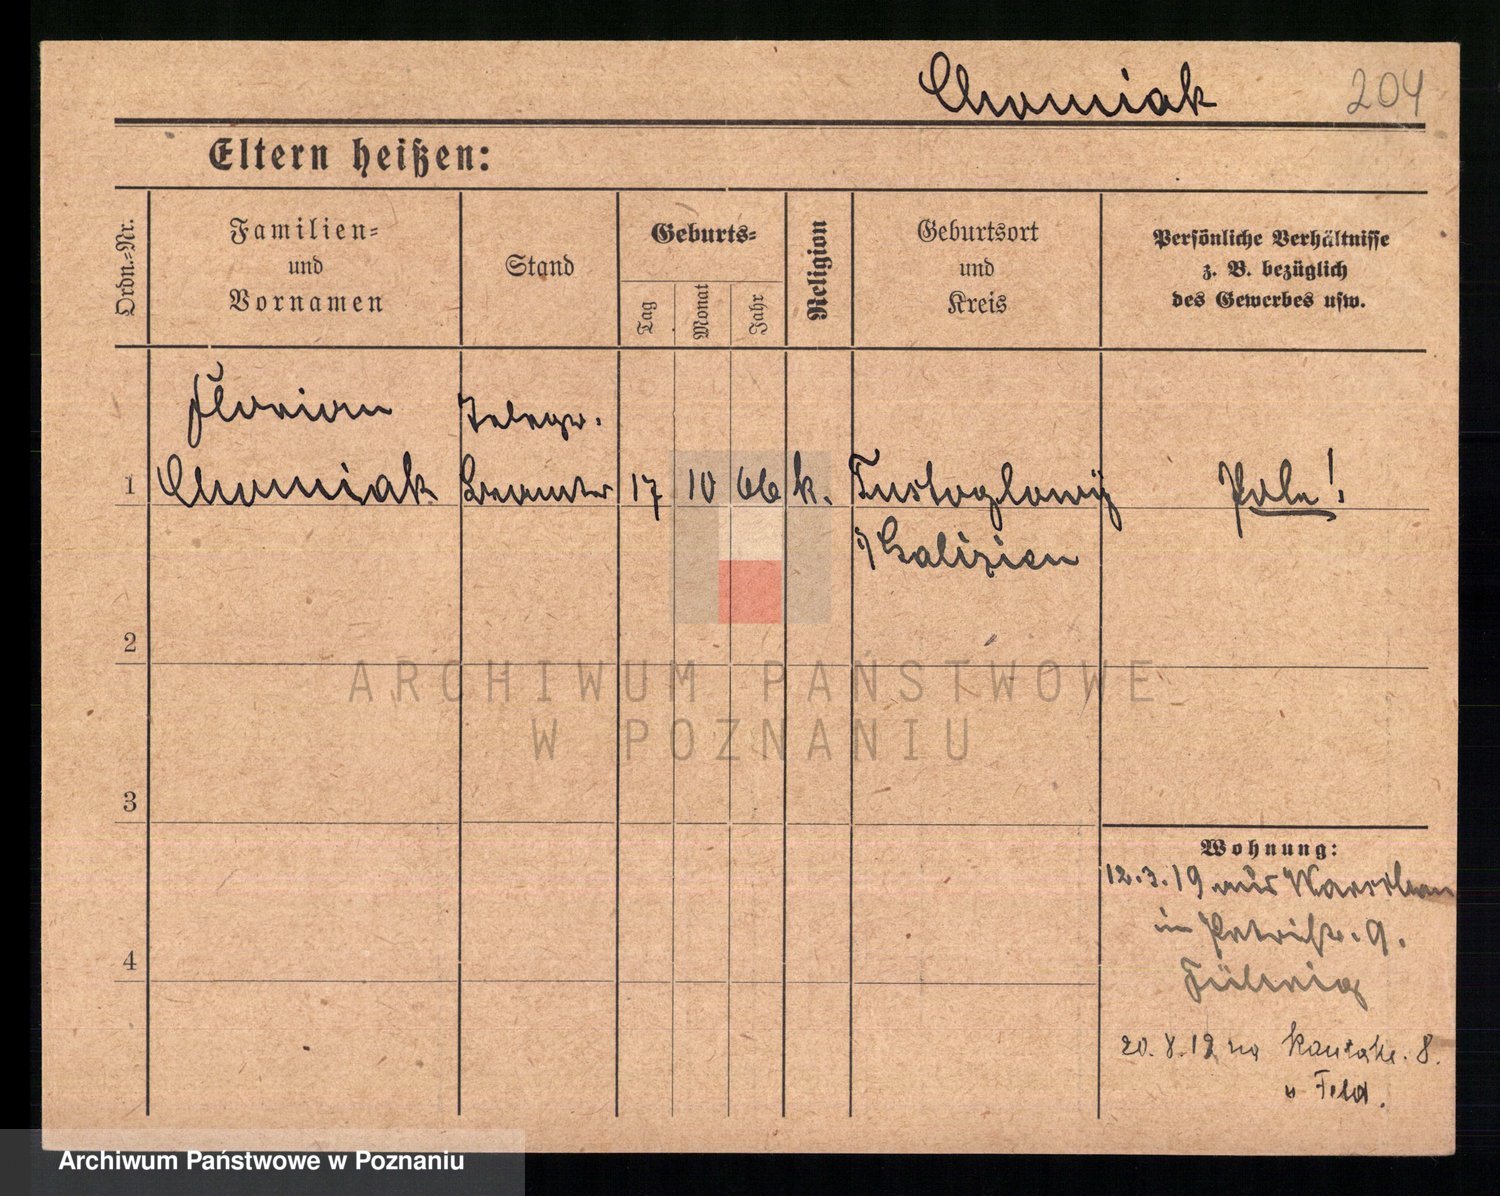 Chomiak 204
Eltern heißen:
Ordn.-Nr.
Familien-
und
Vornamen
Stand
Geburts-
Tag
Monat
Jahr
Religion
Geburtsort
und
Kreis
Persönliche Verhältnisse
z. B. bezüglich
des Gewerbes usw.
Florian Telegr.
1 Chomiak Beamter 17 10 66 k. Tustoglowy Pole!
i/ Galizien
2
3
4
Wohnung:
12.3.19 aus Warschau
in Petristr. 9.
20.8.19 na 8.
Feld.
ARCHIWUM PAŃSTWOWE
W POZNANIU
Archiwum Państwowe w Poznaniu